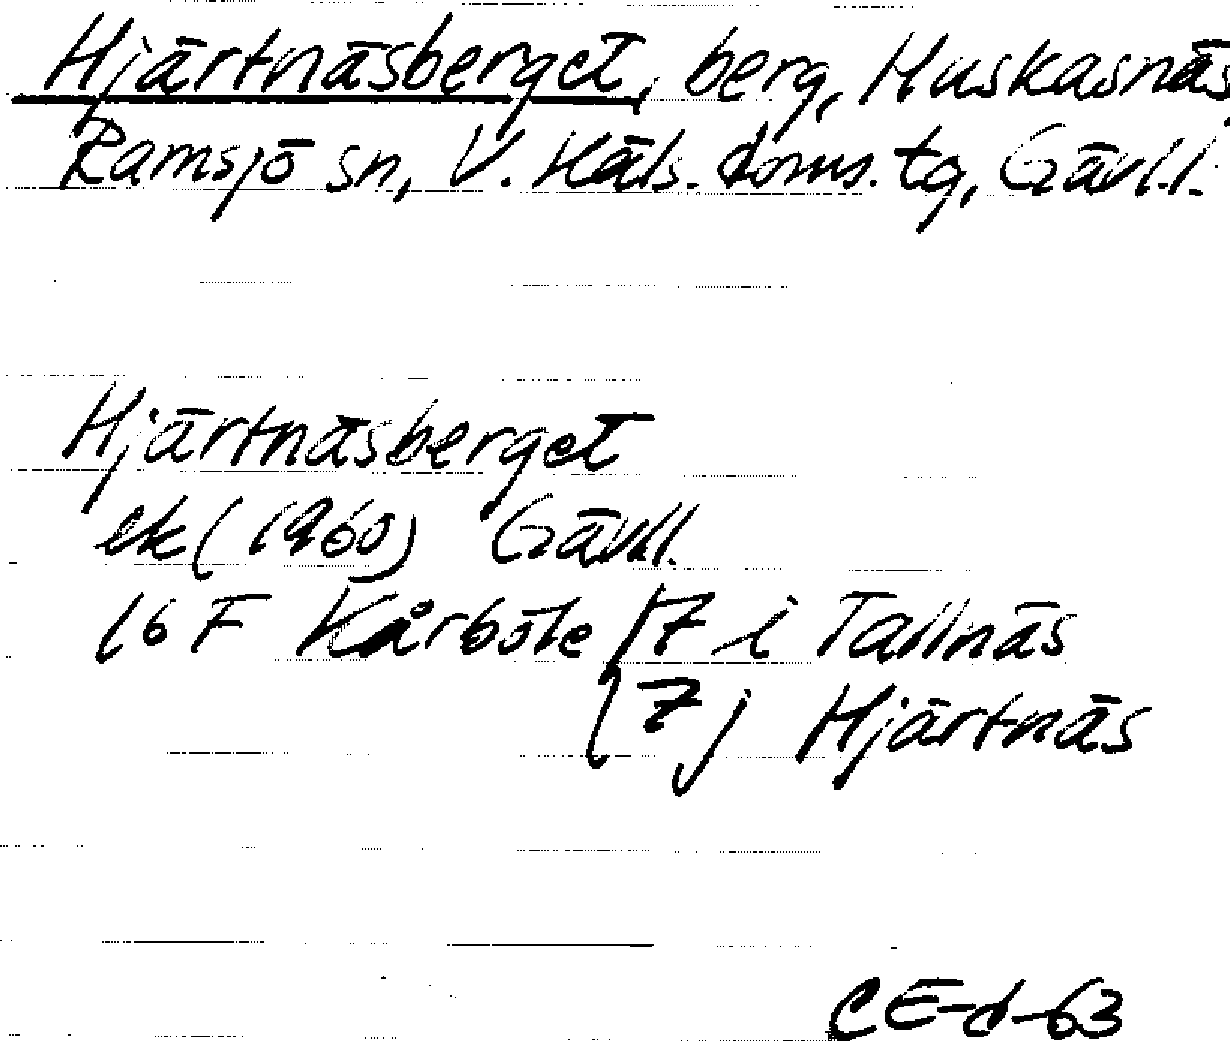 Hjärtnäsberget, berg, Huskasnäs,
Ramsjö sn, V. Häls. doms. tg, Gävl.l.
Hjärtnäsberget
ek (1960) Gävl.l.
16 F Kårböle /7 i Tallnäs
(7 j Hjärtnäs
CE-d-63